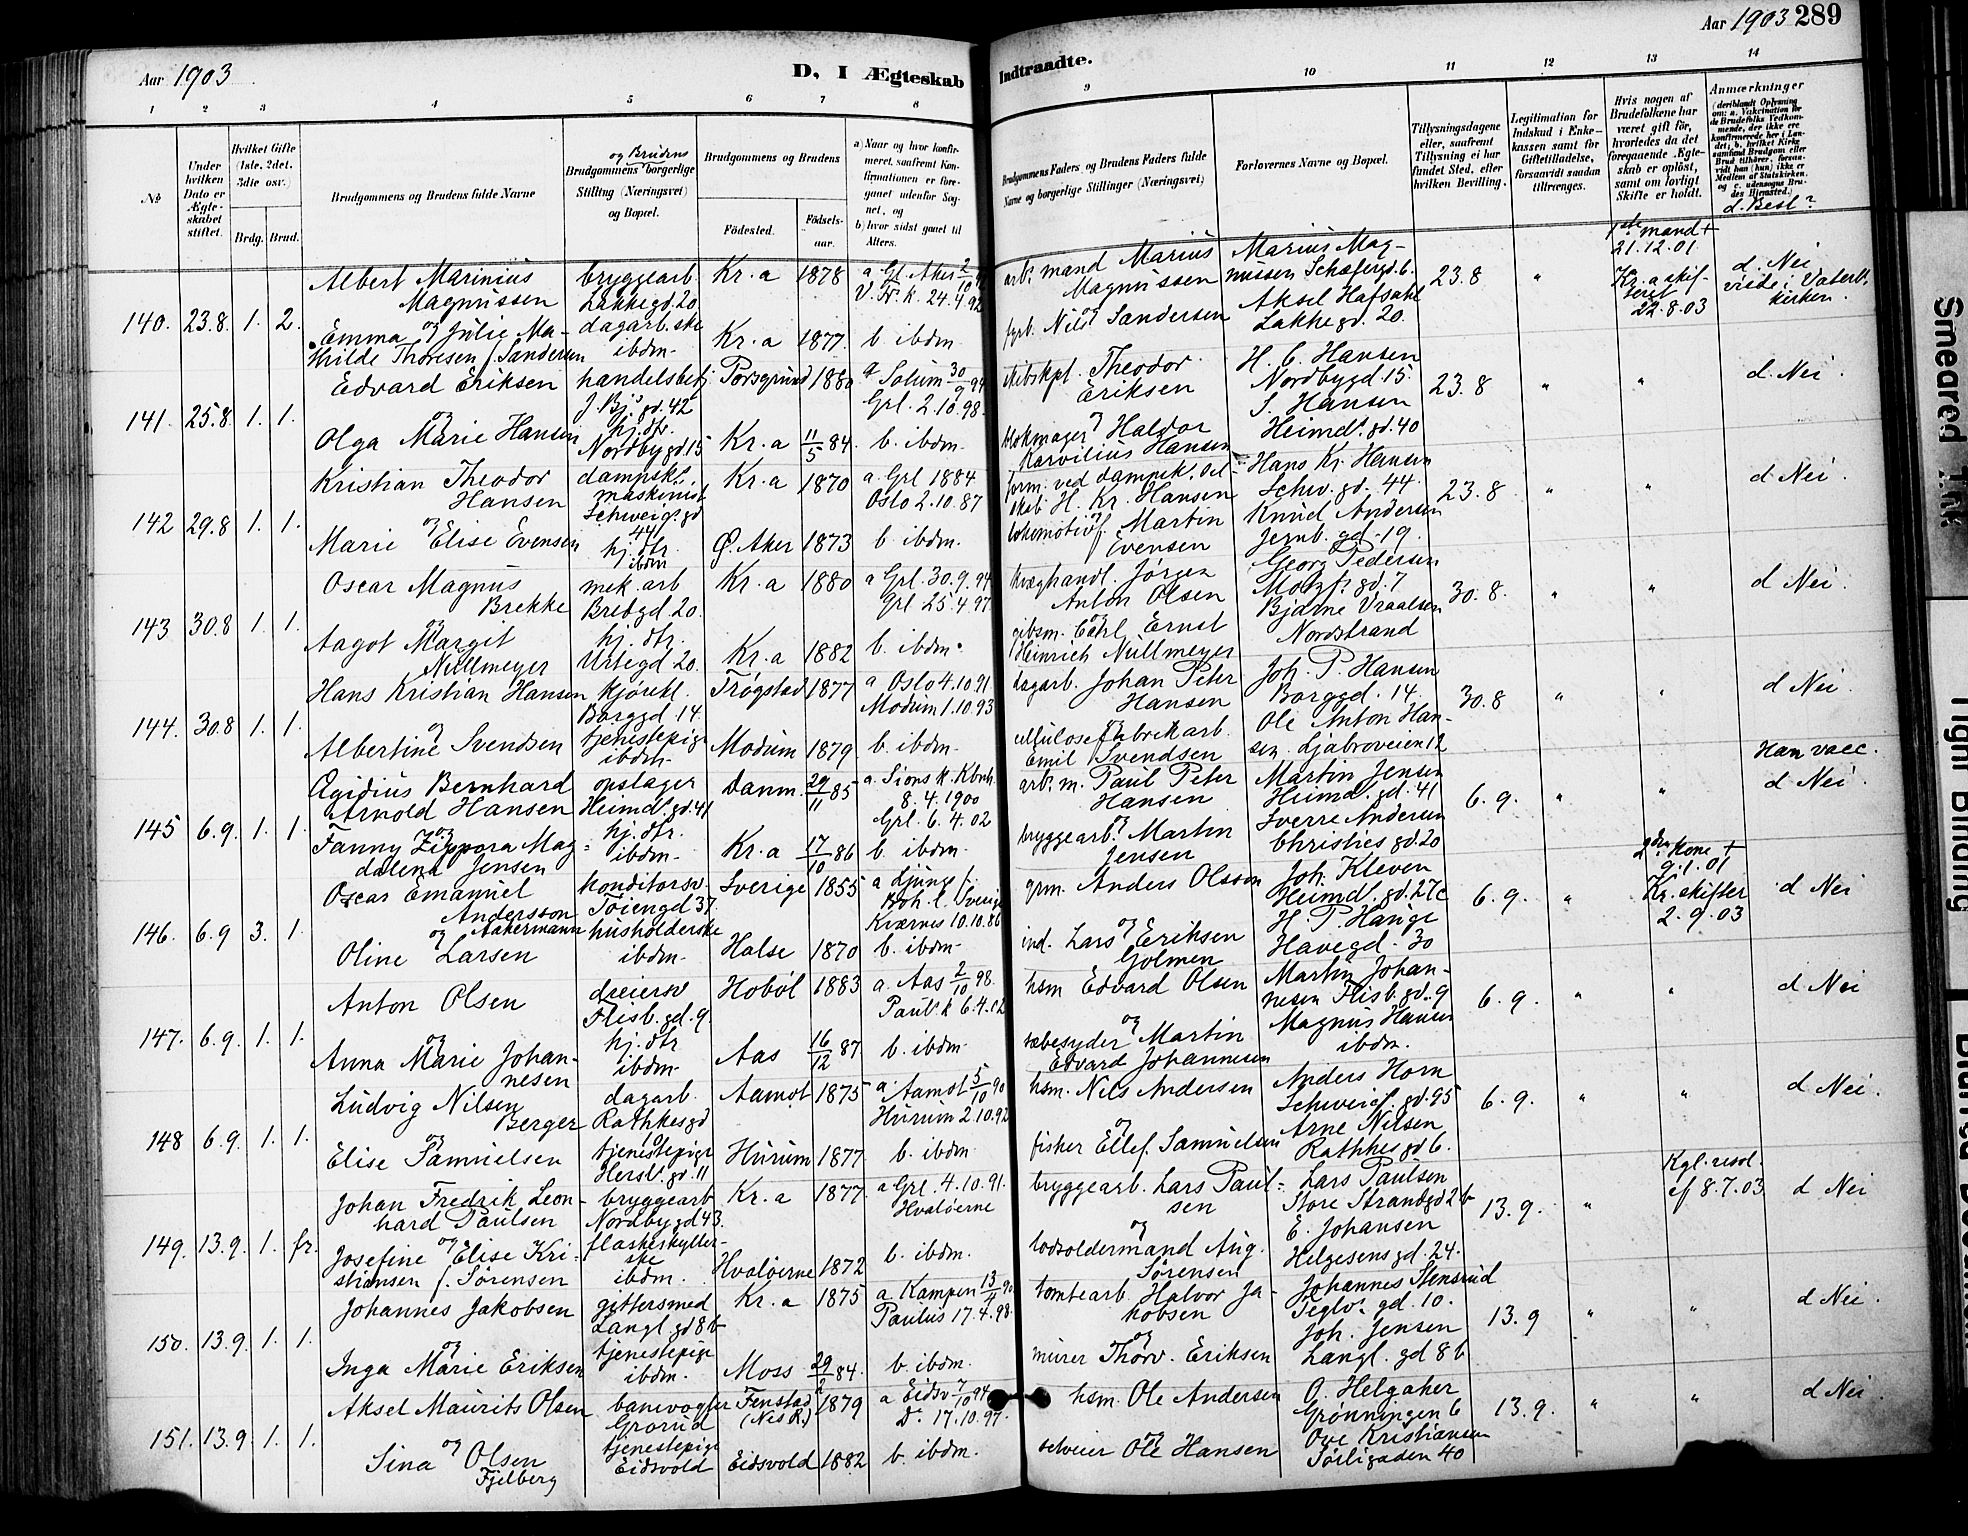 Aar 1903
D, I Ægteskab
1 2 3 4 5 6 7 8
№
Under hvilken Dato er Ægteskabet stiftet.
Hvilket Gifte (1ste. 2det. 3die osv.)
Brdg. Brud.
Brudgommens og Brudens fulde Navne
og Brudens
Brudgommens borgerlige Stilling (Næringsvei) og Bopæl.
Brudgommens og Brudens
Fødested. Fødselsaar.
a) Naar og hvor konfirmeret, saafremt Konfirmationen er foregaaet udenfor Sognet, og
b) hvor sidst gaaet til Alters.
140. 23.8. 1. 2.
Albert Marinius Magnussen bryggearb. Lakkegd. 20 Kr.a 1878 a. Gl. Aker V. Fr. k. 24.4.92
og
Emma Julie Mathilde Thoresen f. Sandersen dagarb.ske ibdm. Kr.a 1877. b. ibdm.
141. 25.8. 1. 1.
Edvard Eriksen handelsbetj. J. Bj. gd. 42 Porsgrund 1880 a Solum 30/9 94 Grl. 2.10.98.
og
Olga Marie Hansen hj. dtr. Nordbygd 15 Kr.a 11/5 84. b. ibdm.
142 29.8 1. 1.
Kristian Theodor Hansen dampsk. maskinist Schweig. gd 44 Kr.a 1870 a. Grl 1884 Oslo 2.10.87
og
Marie Elise Evensen hj. dtr. ibdm Ø. Aker 1873 b. ibdm.
143 30.8 1. 1.
Oscar Magnus Brekke mek. arb Bredgd 20. Kr.a 1880 a Grl. 30.9.94 Grl 25.4.97
og
Aagot Margit Nüllmeyer hj. dtr. Urtegd 20. Kr.a 1882 b. ibdm.
144. 30.8 1. 1.
Hans Kristian Hansen kjørekl. Borggd 14. Trøgstad 1877 a Oslo 4.10.91 Modum 1.10.93
og
Albertine Svendsen tjenestepige ibdm. Modum 1879. b. ibdm.
145 6.9. 1. 1.
Ægidius Bernhard Arnold Hansen opslager Heimdl. gd. 41 Danm. 29/11 85 a. Sions k. Kbnh. 8.4.1900 Grl. 6.4.02
og
Fanny Zippora Magdalena Jensen hj. dtr. ibdm. Kr.a 17/10 86 b. ibdm.
146. 6.9 3. 1.
Oscar Emanuel Andersson Aakermann konditorsv. Tøiengd 37 Sverige 1855 a Ljung f. Boh. l. Sverige Kværnes 10.10.86
og
Oline Larsen husholderske ibdm. Halse 1870 b. ibdm.
147. 6.9. 1. 1.
Anton Olsen dreiersv Flisb. gd. 9. Hobøl 1883 a. Aas 2/10 98. Paul. k 6.4.02
og
Anna Marie Johannesen hj. dtr ibdm. Aas 16/12 87 b. ibdm.
148 6.9. 1. 1.
Ludvig Nilsen Berger dagarb. Rathkesgd Aamot 1875 a. Aamot 5/10 90 Hurum 2.10.92
og
Elise Samuelsen tjenestepige Hersl. gd. 11 Hurum 1877 b. ibdm
149. 13.9. 1. fr.
Johan Fredrik Leonhard Paulsen bryggearb Nordbygd 43. Kr.a 1877. a Grl. 4.10.91. Hvaløerne
og
Josefine Elise Kristiansen f. Sørensen flaskeskyllerske ibdm. Hvaløerne 1872 b. ibdm.
150. 13.9. 1. 1.
Johannes Jakobsen gittersmed Langl. gd 8b Kr.a 1875 a. Kampen 13/4 90 Paulus 17.4.98.
og
Inga Marie Eriksen tjenestepige ibdm. Moss 29/2 84. b. ibdm.
151. 13.9 1. 1.
Aksel Maurits Olsen banevogter Grorud Fenstad (Nes R.) 1879 a Eidsv 7/10 94 Do. 17.10.97.
og
Sina Olsen Fjelberg tjenestepige Eidsvold Eidsvold 1882 b. ibdm.
Aar 1903 289
Indtraadte.
9 10 11 12 13 14
Brudgommens Faders og Brudens Faders fulde Navne og borgerlige Stillinger (Næringsvei)
Forlovernes Navne og Bopæl.
Tillysningsdagene eller, saafremt Tillysning ei har fundet Sted, efter hvilken Bevilling.
Legitimation for Indskud i Enkekassen samt for Giftetilladelse, forsaavidt saadan tiltrænges.
Hvis nogen af Brudefolkene har været gift før, hvorledes da det foregaaende Ægteskab er opløst, samt om lovligt Skifte er holdt.
Anmærkninger
(deriblandt Oplysning om: a. Vakcination for de Brudefolks Vedkommende, der ikke ere konfirmerede her i Landet; b. hvilket Kirkesamfund Brudgom eller Brud tilhører, forsaavidt han (hun) ikke er Medlem af Statskirken. og c. udensogns Brudes Hjemsted.)
d. Besl?
arb. mand Marius Magnussen Marius Magnussen Schæfergd. 6. 23.8 " 1ste mand + 21.12.01. Kr.a skifteret 22.8.03 d. Nei viede i Vaterl. kirken.
og
fyrb. Nils Sandersen Aksel Hafsahl Lakkegd. 20.
skibskpt. Theodor Eriksen H. C. Hansen Nordbygd. 15. 23.8 " " d. Nei.
og
blokmager Haldor Karvilius Hansen S. Hansen Heimdl. gd. 40
form. ved dampsk. selskab H. Kr. Hansen Hans Kr. Hansen Schw. gd. 44. 23.8 " " d Nei.
og
lokomotivf. Martin Evensen Knud Andersen Jernb. gd. 19.
kvæghandl. Jørgen Anton Olsen Georg Pedersen Motzf. gd. 7 30.8. " " d Nei.
og
gibsm. Carl Ernst Heinrich Nüllmeyer Bjarne Vraalsen Nordstrand
dagarb. Johan Peter Hansen Joh. P. Hansen Borggd. 14. 30.8 " " d Nei.
og
cellulosefabrikarb. Emil Svendsen Ole Anton Hansen. Ljabroveien 12
arb. m. Paul Peter Hansen Martin Jensen Heimd. gd. 41 6.9. " " Han vacc. d Nei.
og
bryggearb. Martin Jensen Sverre Andersen Christies gd. 20
grm. Anders Olsson Joh. Kleven Heimdl. gd. 27c 6.9. " 2den kone + 9.1.01 Kr. skifter 2.9.03 d Nei
og
ind. Lars Eriksen Golmen H. P. Hauge Havegd. 30
hsm Edvard Olsen Martin Johannesen Flisb. gd. 9 6.9. " " d Nei
og
sæbesyder Martin Edvard Johannesen Magnus Hansen ibdm.
hsm. Nils Andersen Anders Horn Schweig. gd. 95 6.9. " " d Nei.
og
fisker Ellef Samuelsen Arne Nilsen Rathkes gd 6.
bryggearb. Lars Paulsen Lars Paulsen Store Strandgd 2b 13.9. " Kgl. resol. af 8.7.03 d Nei
og
lodsoldermand Aug. Sørensen E. Johansen Helgesens gd. 24.
tomtearb. Halvor Jakobsen Johannes Stensrud Teglv. gd. 10. 13.9 " " d Nei.
og
murer Thorv. Eriksen Joh. Jensen Langl. gd 8b
hsm. Ole Andersen O. Helgaker Grønningen 6 13.9. " " d Nei.
og
selveier Ole Hansen Ove Kristiansen Sørligaden 40
Smeared Ink
Tight Binding